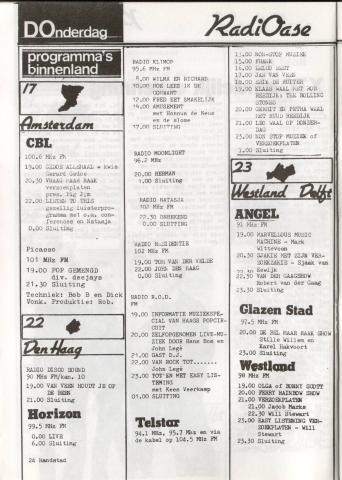 DOnderdag
RadiOase
programma's
binnenland
17
Amsterdam
CBL
100.6 MHz FM
19.00 GOEDS ALLEMAAL = kwis
Gerard Godoe
20.30 VRAAG MAAR RAAK
verzoekplaten
pres.
22.00 LISTEN TO THIS
gezellig luisterpro-
gramma met o.a. con-
ferences en Natasja
0.00 Sluiting
Picasso
101 MHz FM
19.00 POP GEMENGD
div. deejays
21.30 Sluiting
Techniek: Bob B en Dick
Vonk. Produktie: Rob.
22
Den Haag
RADIO DISCO SOUND
90 MHz FM/kan. 10
19.00 VAN VEEN HOUDT JE OP
DE BEEN
21.00 Sluiting
Horizon
99.5 MHz FM
0.00 LIVE
6.00 Sluiting
24 Randstad
RADIO KLIMOP
95.6 MHz FM
8.00 WILMA EN RICHARD
10.00 HOE LEES IK DE
COURANT
12.00 FRED EET SMAKELIJK
14.00 AMUSEMENT
met Hannus de Neus
en de slome
17.00 SLUITING
RADIO MOONLIGHT
96.2 MHz
20.00 HERMAN
1.00 Sluiting
RADIO NATASJA
102 MHz FM
22.30 ONBEKEND
0.00 SLUITING
RADIO RESIDENTIE
102 MHz FM
19.00 TON VAN DER VELDE
22.00 JOHN DEN HAAG
0.00 Sluiting
RADIO R.O.D.
FM
19.00 INFORMATIE MUZIEKSPE-
CIAL VAN HAAGS POPCIR-
CUIT
20.00 ZELFOPGENOMEN LIVE-MU-
ZIEK DOOR Hans Bos en
John Legé
21.00 GAST D.J.
22.00 VAN ROCK TOT.......
John Legé
23.00 TOT EN MET EASY LIS-
TENING
met Kees Veerkamp
01.00 SLUITING
Telstar
94.1 MHz, 95.7 Mhz en via
de kabel op 104.5 MHz FM
13.00 NON-STOP MUZIEK
15.00 FRANK
16.00
17.00 JAN VAN VEEN
18.00 ERIK DE RUITER
19.00 KLAAS WAAL MET HUN
REEELTJE: THE ROLLING
STONES
20.00 GERRIT EN PETRA WAAL
MET HUUB REEELTJE
21.00 LEO WAAL OP DONDER-
DAG
23.00 NON STOP MUZIEK of
VERZOEKPLATEN
1.00 Sluiting
23
Westland Delft
ANGEL
91 MHz FM
19.00 MARVELLOUS MUSIC
MACHINE - Mark
Witteveen
20.30 SJAKIE MET ZIJN VER-
ZOEKZAKIE - Sjaak van
Rewijk
22.00 VAN DER GAAGSHOW
Robert van der Gaag
23.30 Sluiting
Glazen Stad
97.5 MHz FM
20.00 DE BEL MAAR RAAK SHOW
Stille Willem en
Karel Hakvoort
23.00 Sluiting
Westland
98 MHz FM
19.00 OLGA of RONNY SCOTT
20.00 FERRY RAINBOW SHOW
21.00 VERZOEKPLATEN
21.00 Jacob Marks
22.30 Will Stewart
23.00 EASY LISTENING VER-
ZOEKPLATEN - Will
Stewart
23.30 Sluiting